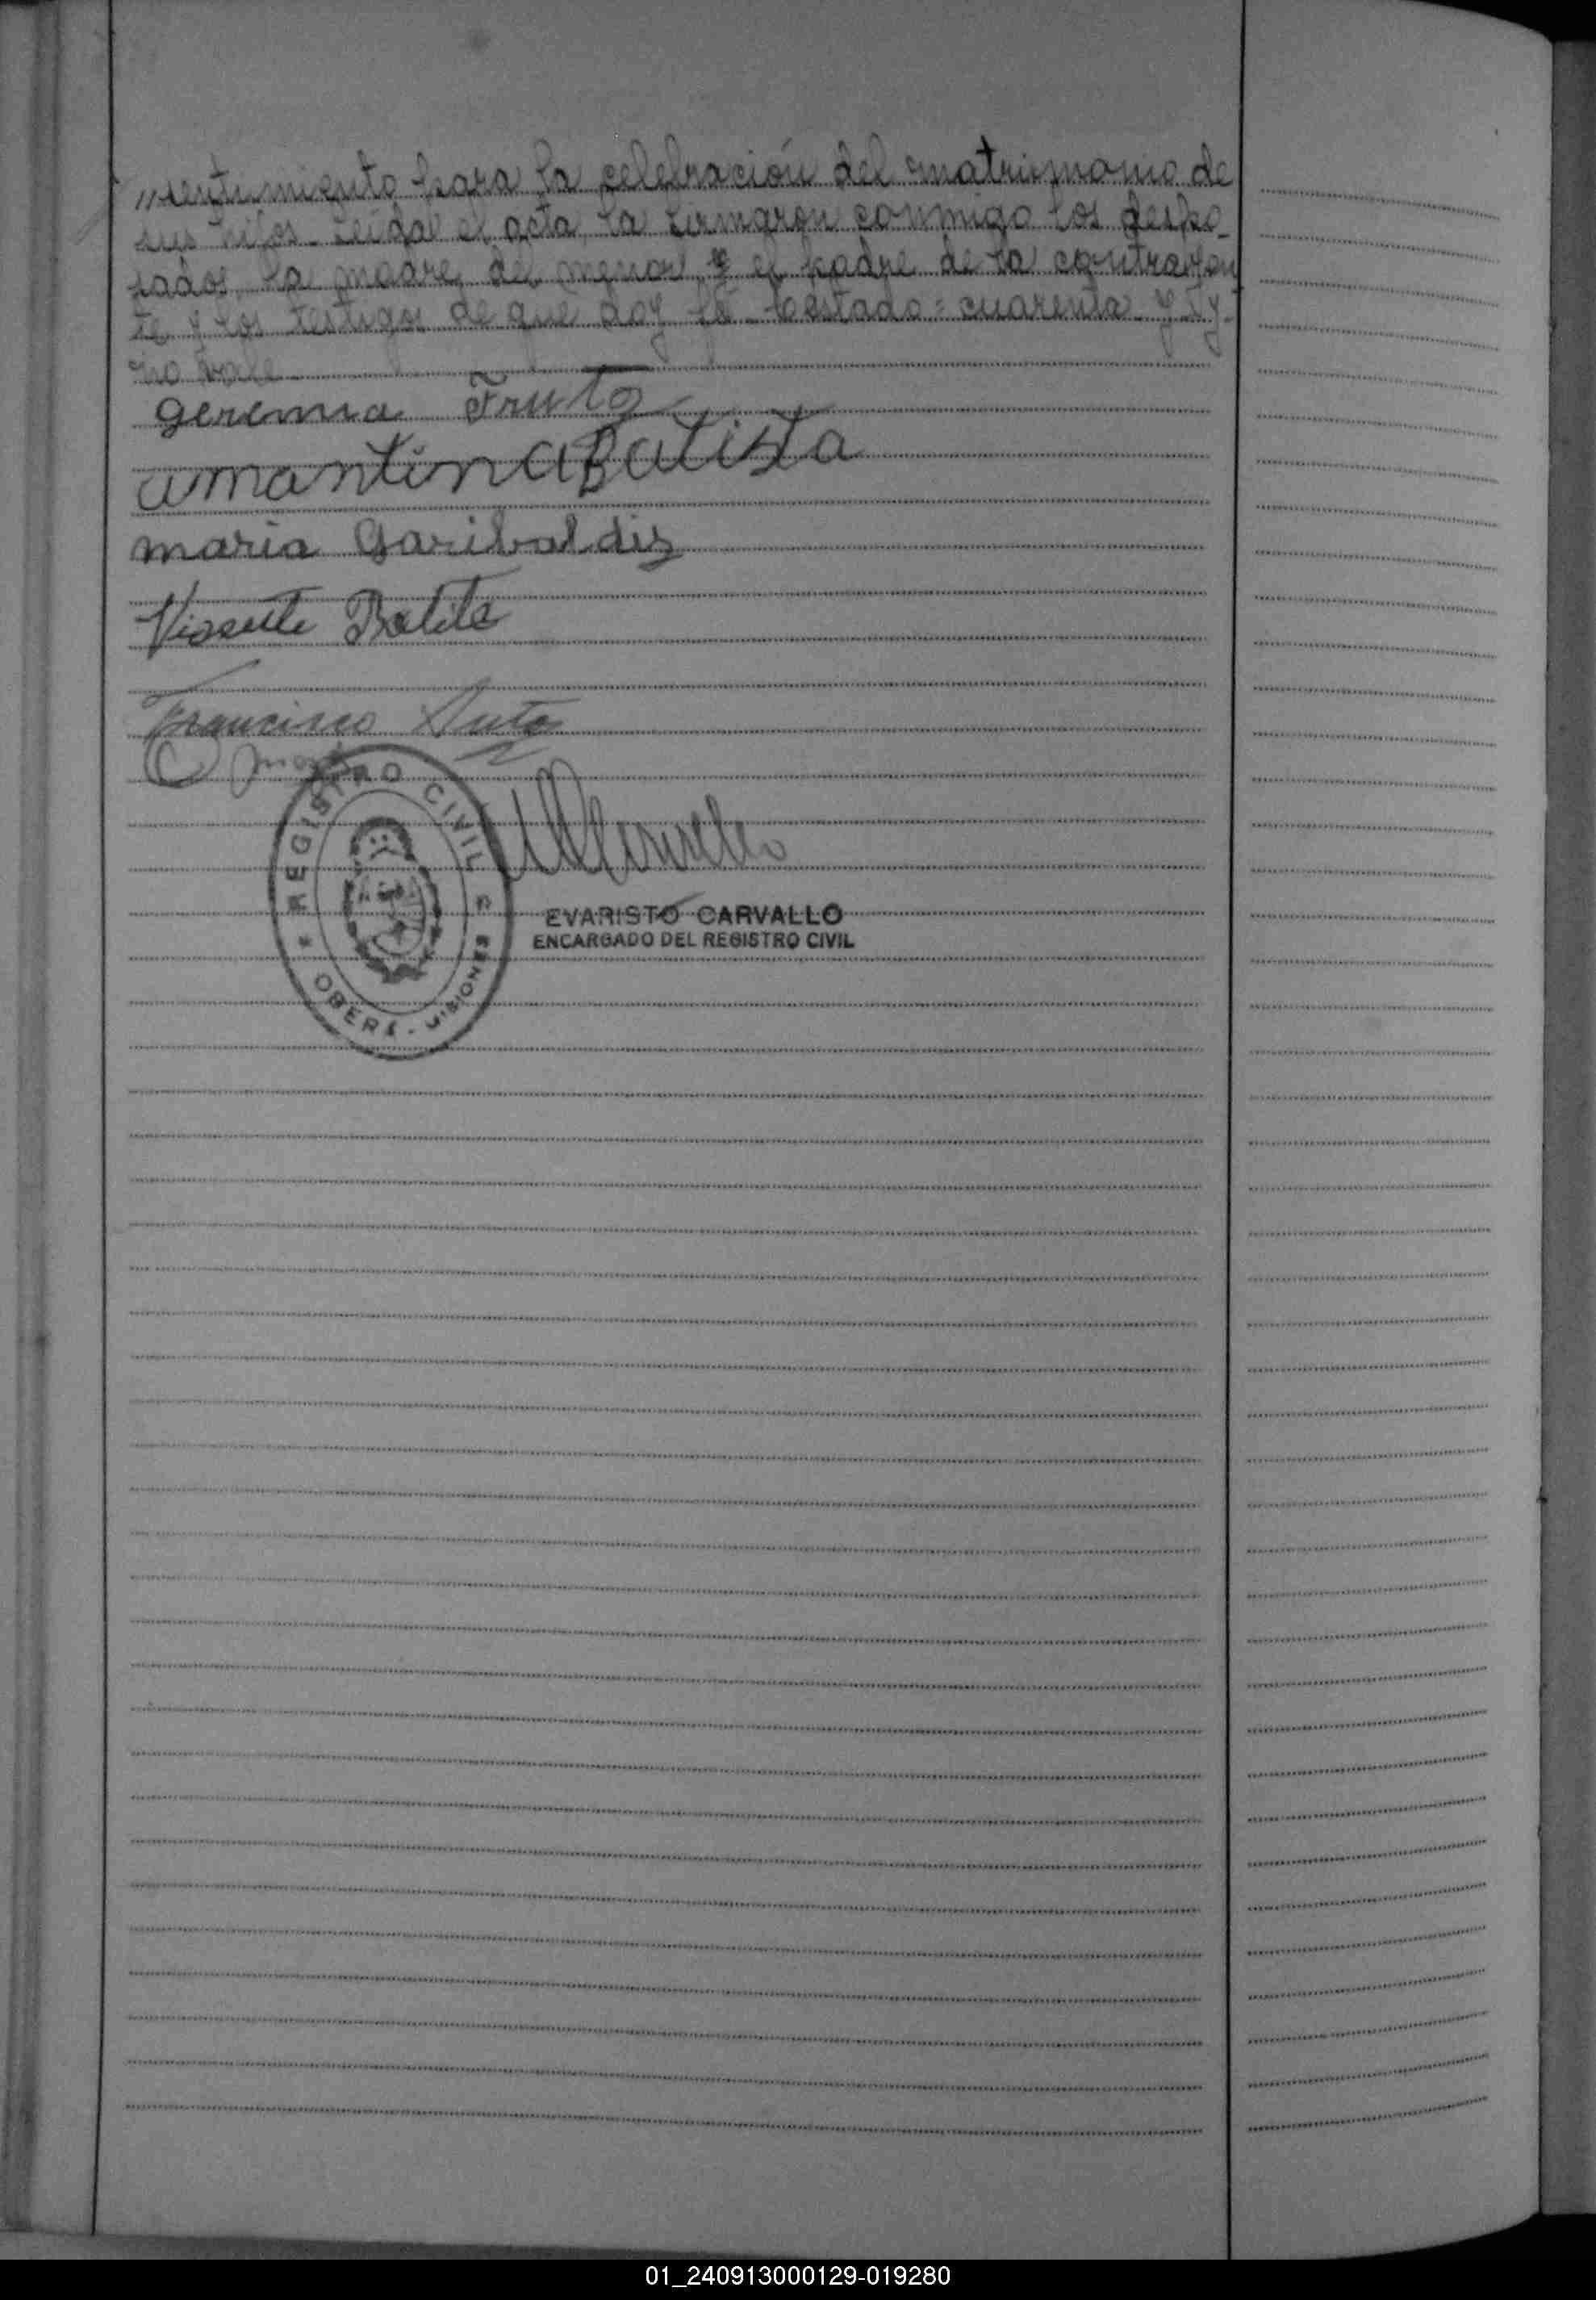 //sentimiento para la celebración del matrimonio de
sus hijos. Leída el acta, la firmaron conmigo los despo-
sados, la madre del menor, y el padre de la contrayen
te y los testigos de que doy fé. Testado = cuarenta y
no vale
geremia Fruto
amantina Batista
maria Garibaldis
Vicente
Francisco
REGISTRO CIVIL
OBERÁ - MISIONES
EVARISTO CARVALLO
ENCARGADO DEL REGISTRO CIVIL
01_240913000129-019280